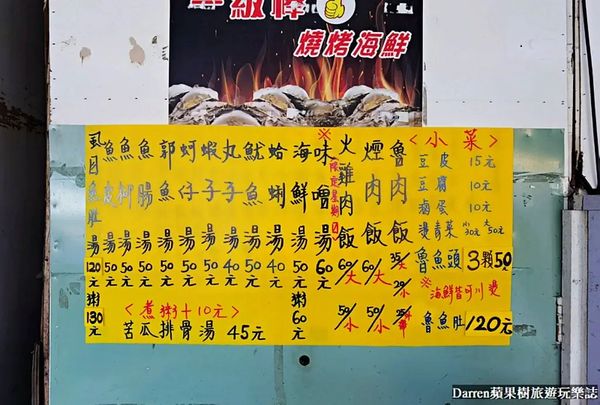 級棒
燒烤海鮮
<小菜>
豆皮 15元
豆腐 10元
滷蛋 10元
燙青菜 小30元 大50元
魯魚頭 3顆50元
※海鮮皆可川燙
魯魚肚 120元
魯肉飯
煙肉飯 60/大 50/小
火雞肉飯 60/大 50/小
※味噌湯 60元
海鮮湯 50元 粥60元
蛤蜊湯 40元
魷魚湯 50元
丸子湯 40元
蝦子湯 50元
蚵仔湯 50元
郭魚湯 50元
魚腸湯 50元
魚湯 50元
魚皮湯 50元
虱目魚肚湯 120元 粥130元
<煮粥+10元>
苦瓜排骨湯 45元
Darren蘋果樹旅遊玩樂誌